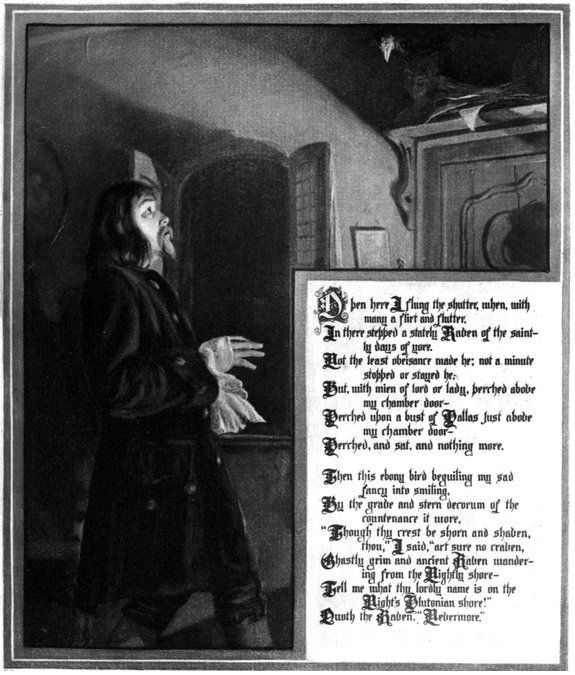 Open here I flung the shutter, when, with
many a flirt and flutter,
In there stepped a stately Raven of the saint-
ly days of yore.
Not the least obeisance made he; not a minute
stopped or stayed he;
But, with mien of lord or lady, perched above
my chamber door—
Perched upon a bust of Pallas just above
my chamber door—
Perched, and sat, and nothing more.
Then this ebony bird beguiling my sad
fancy into smiling,
By the grave and stern decorum of the
countenance it wore,
"Though thy crest be shorn and shaven,
thou," I said, "art sure no craven,
Ghastly grim and ancient Raven wander-
ing from the Nightly shore—
Tell me what thy lordly name is on the
Night's Plutonian shore!"
Quoth the Raven: "Nevermore."